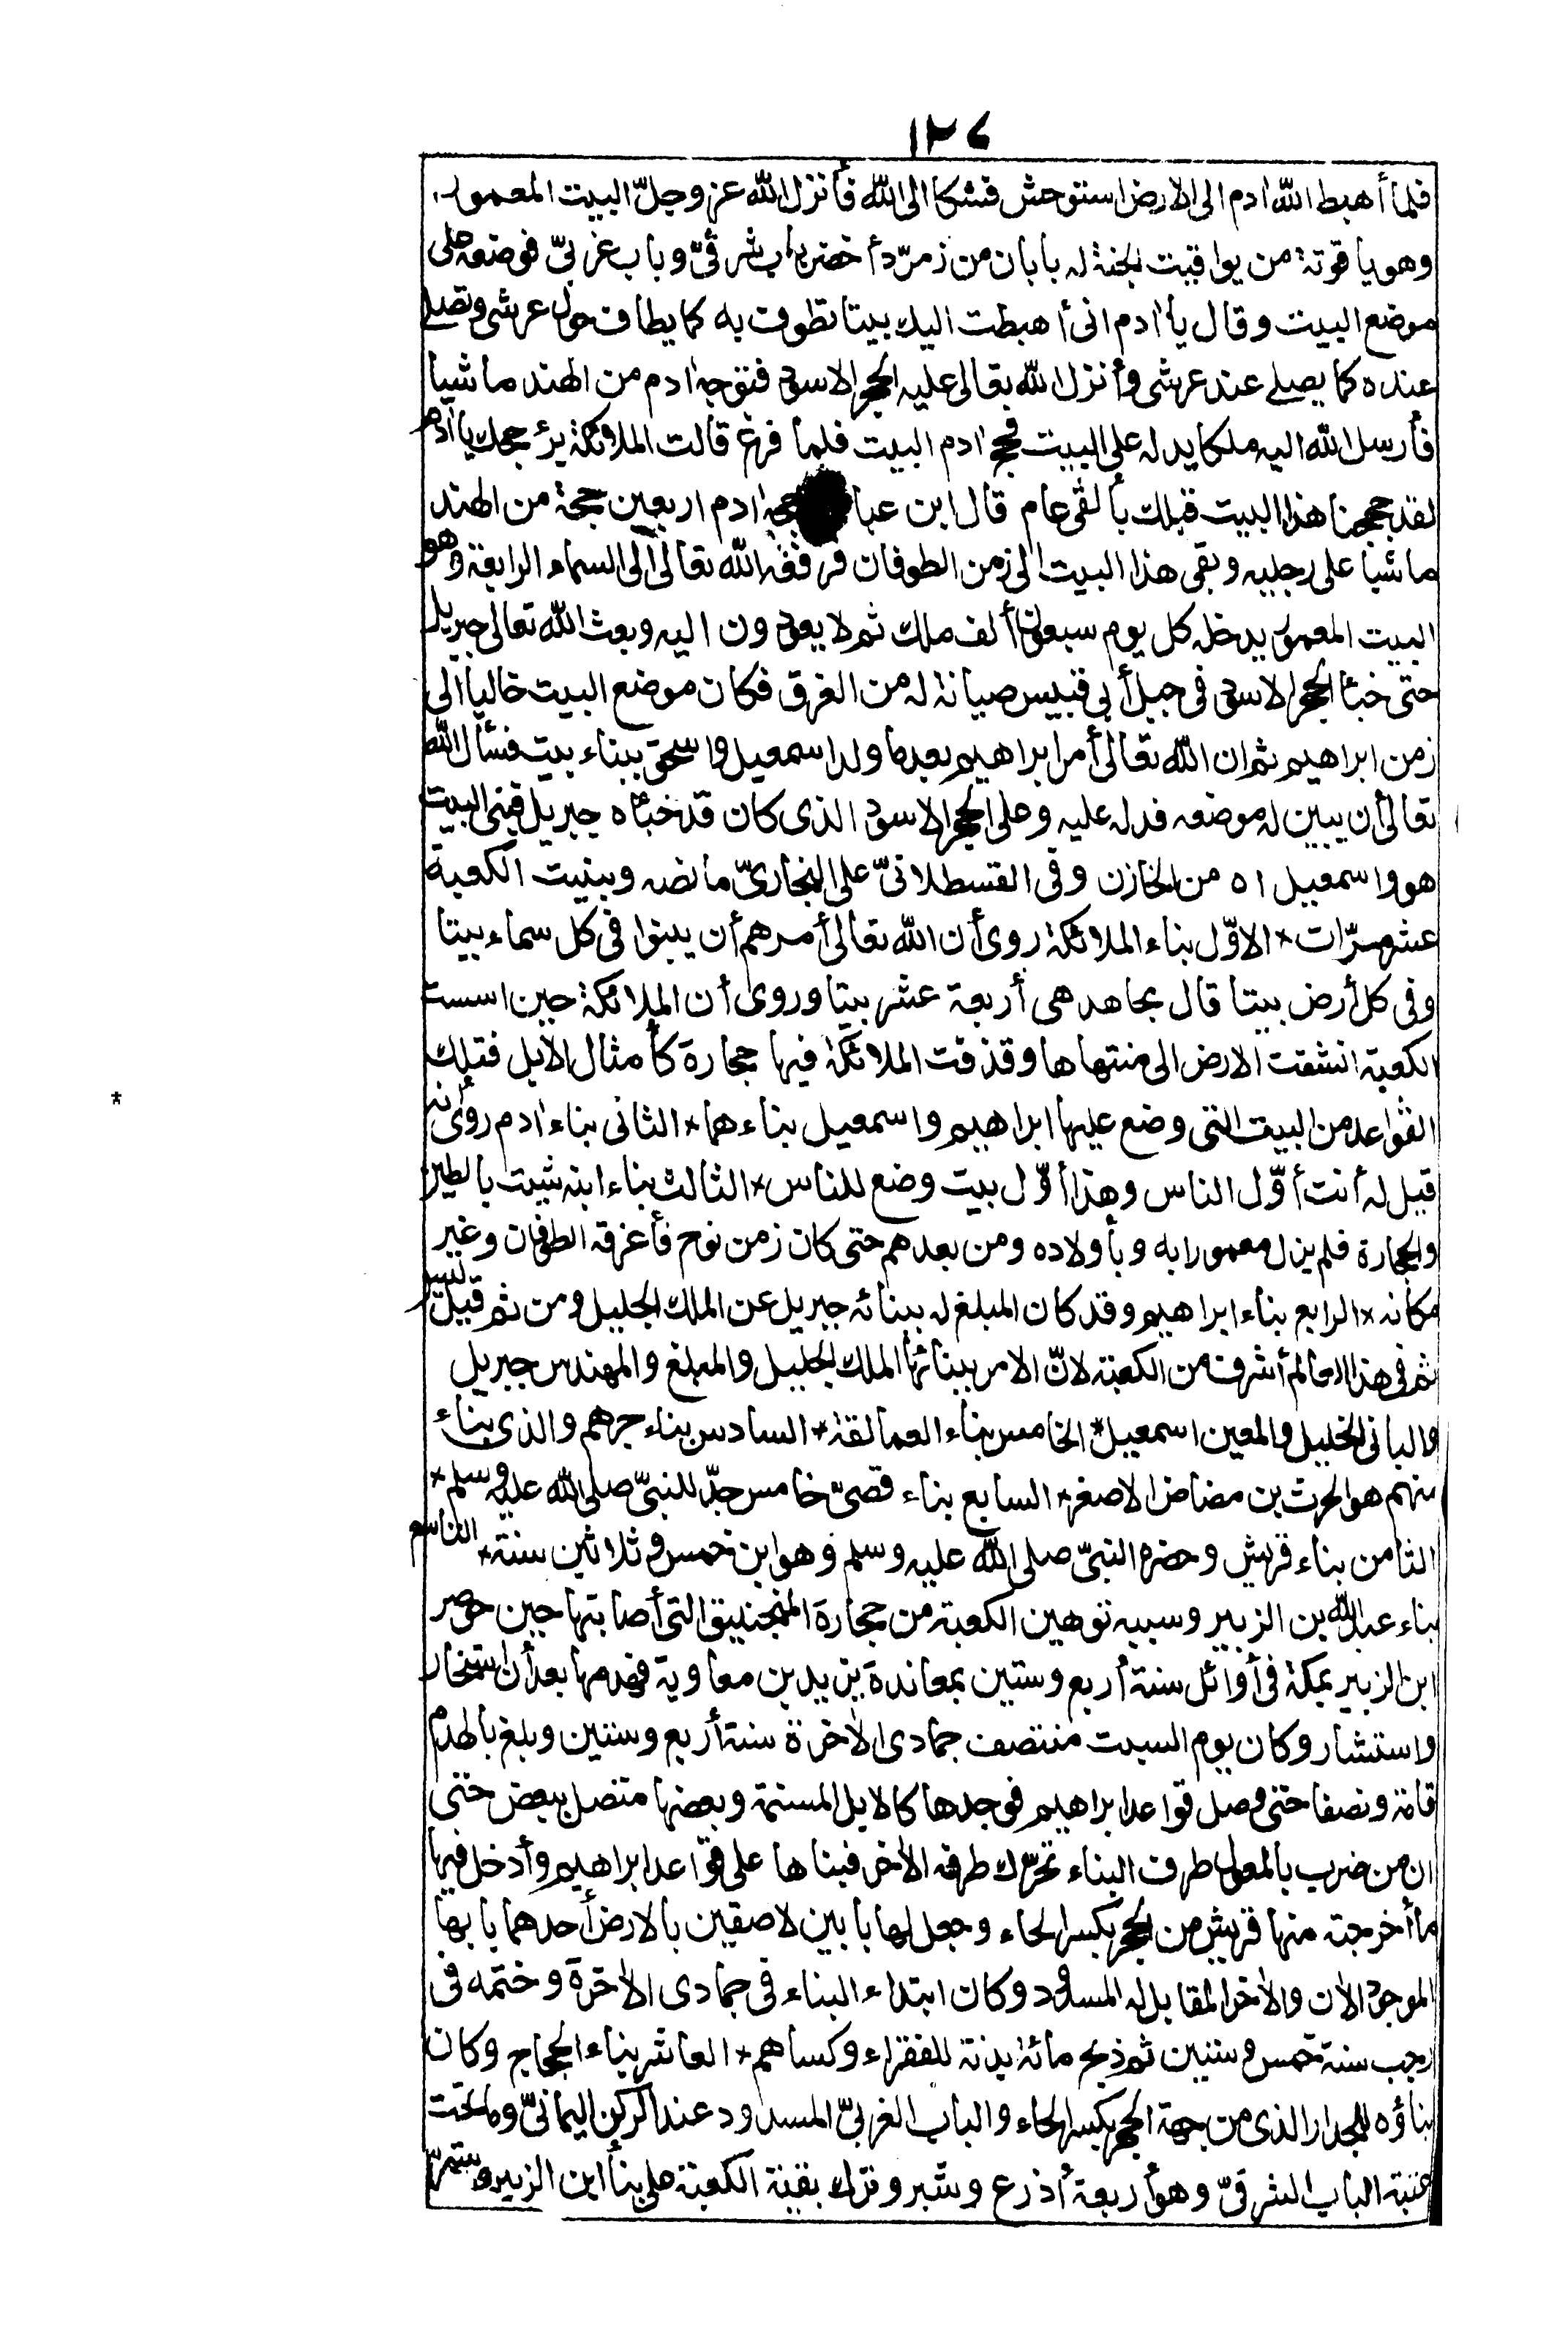 ١٢٦
فلما أهبط الله اٰدم الى الارض استوحش فشكا الى الله فأنزل الله عز وجلّ البيت المعمور
وهو ياقوتة من يواقيت الجنة له بابان من زمرّد أخضر باب شرقىّ وباب غربىّ فوضعه على
موضع البيت وقال يا اٰدم انى أهبطت اليك بيتا تطوف به كما يطاف حول عرشى وتصلى
عنده كما يصلى عند عرشى وأنزل الله تعالى عليه الحجر الاسود فتوجه اٰدم من الهند ماشيا
فأرسل الله اليه ملكا يدله على البيت فحج اٰدم البيت فلما فرغ قالت الملائكة برّ حجك يا اٰدم
لقد حججنا هذا البيت قبلك بألفى عام قال ابن عباس حج اٰدم اربعين حجة من الهند
ماشيا على رجليه وبقى هذا البيت الى زمن الطوفان فرفعه الله تعالى الى السماء الرابعة وهو
البيت المعمور يدخله كل يوم سبعون ألف ملك ثم لا يعودون اليه وبعث الله تعالى جبريل
حتى خبأ الحجر الاسود فى جبل أبى قبيس صيانة له من الغرق فكان موضع البيت خاليا الى
زمن ابراهيم ثم ان الله تعالى أمر ابراهيم بعد ما ولد اسمعيل واسحق ببناء بيت فسأل الله
تعالى أن يبين له موضعه فدله عليه وعلى الحجر الاسود الذى كان قد خبأه جبريل فبنى البيت
هو واسمعيل اه من الخازن وفى القسطلانىّ على البخارىّ ما نصه وبنيت الكعبة
عشر مرّات * الاوّل بناء الملائكة روى أن الله تعالى أمرهم أن يبنوا فى كل سماء بيتا
وفى كل أرض بيتا قال مجاهد هى أربعة عشر بيتا وروى أن الملائكة حين اسست
الكعبة انشقت الارض الى منتهاها وقذفت الملائكة فيها حجارة كأمثال الابل فتلك
القواعد من البيت التى وضع عليها ابراهيم واسمعيل بناءهما * الثانى بناء اٰدم روى أنه
قيل له أنت أوّل الناس وهذا أوّل بيت وضع للناس * الثالث بناء ابنه شيث بالطين
والحجارة فلم يزل معمورا به وبأولاده ومن بعدهم حتى كان زمن نوح فأغرقه الطوفان وغير
مكانه * الرابع بناء ابراهيم وقد كان المبلغ له ببنائه جبريل عن الملك الجليل ومن ثم قيل ليس
ثم فى هذا العالم أشرف من الكعبة لانّ الامر ببنائها الملك الجليل والمبلغ والمهندس جبريل
والبانى الخليل والمعين اسمعيل * الخامس بناء العمالقة * السادس بناء جرهم والذى بناء
منهم هو الحرث بن مضاض الاصغر * السابع بناء قصىّ خامس جدّ للنبىّ صلى الله عليه وسلم *
الثامن بناء قريش وحضره النبىّ صلى الله عليه وسلم وهو ابن خمس وثلاثين سنة * التاسع
بناء عبد الله بن الزبير وسببه توهين الكعبة من حجارة المنجنيق التى أصابتها حين حوصر
ابن الزبير بمكة فى أوائل سنة أربع وستين بمعاندة يزيد بن معاوية فهدمها بعد أن استخار
واستشار وكان يوم السبت منتصف جمادى الاٰخرة سنة أربع وستين وبلغ بالهدم
قامة ونصفا حتى وصل قواعد ابراهيم فوجدها كالابل المسنمة وبعضها متصل ببعض حتى
ان من ضرب بالمعول طرف البناء تحرّك طرفه الاٰخر فبناها على قواعد ابراهيم وأدخل فيها
ما أخرجته منها قريش من الحجر بكسر الحاء وجعل لها بابين لاصقين بالارض أحدهما بابها
الموجود الاٰن والاٰخر المقابل له المسدود وكان ابتداء البناء فى جمادى الاٰخرة وختمه فى
رجب سنة خمس وستين ثم ذبح مائة بدنة للفقراء وكساهم * العاشر بناء الحجاج وكان
بناؤه للجدار الذى من جهة الحجر بكسر الحاء والباب الغربىّ المسدود عند الركن اليمانىّ وما تحت
عتبة الباب الشرقىّ وهو أربعة أذرع وشبر وترك بقية الكعبة على بناء ابن الزبير واستمرّ